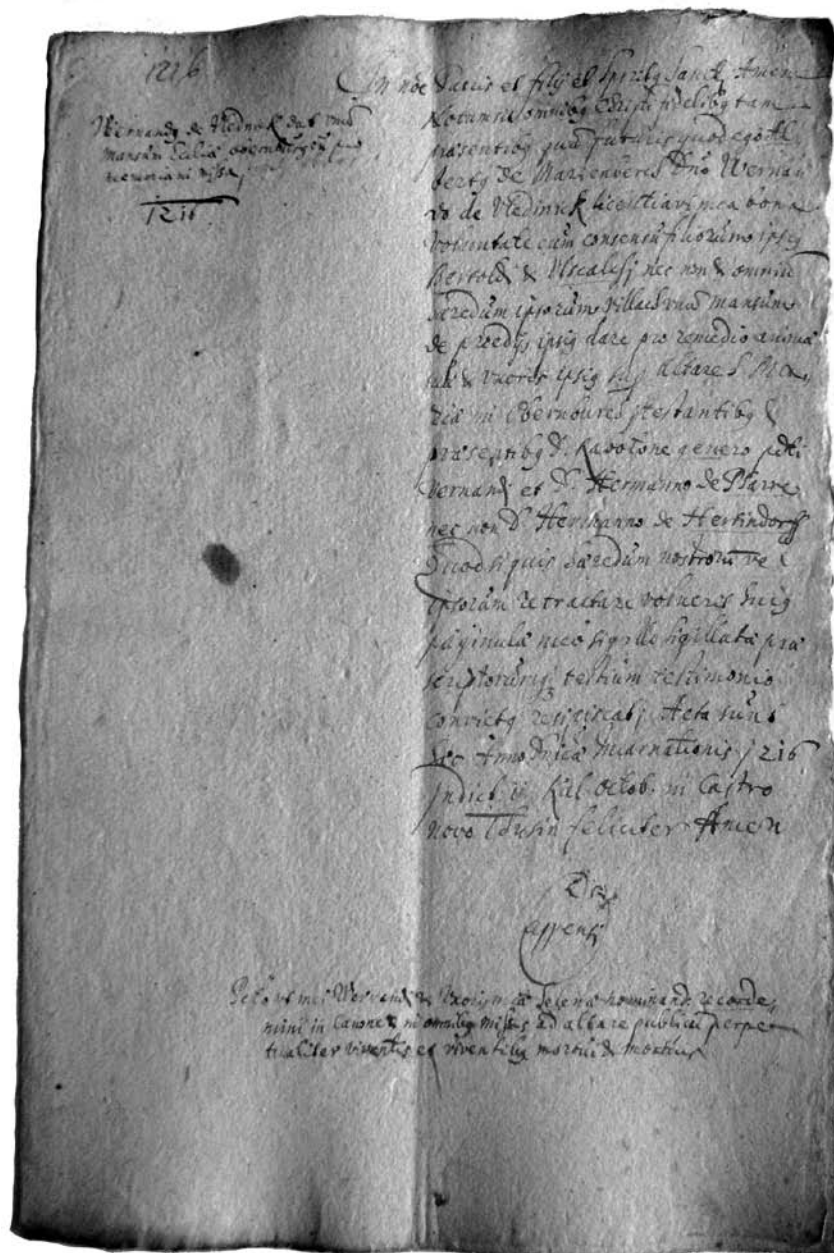 1216
Wernandq de Vledinick dat unū
mansum Ecliæ obernburgen pro
memoriam missæ
1216
In nōe Patris et filij et spritq sanctj Amen
Notum sit omnibq Christi fidelibq tam
præsentibq quā futuris quod ego
bertq de Marienveres Dno Wernan
do de Vledinick licentiavi mea bona
voluntate cum consensu filiorum ipsiq
Bertoldj & nec non & omniū
hæredum ipsorum unū mansum
de prædijs ipsiq dare pro remedio animæ
suæ & uxoris ipsiq sup Altare S. Ma
riæ in Obernburch testantibq &
præsentibq D. genero pdti
Vernandj et D. Hermanno de Pharre
nec non D. Hermanno de Hertindorff
Quod si quis hæredum nostrorū vel
ipsorum retractare voluerit huiq
paginulæ meo sigillo sigillatæ præ
scriptorumq testium testimonio
convictq resipiscat, Acta sunt
hæc Anno Dnicæ Incarnationis 1216
Indict. ij Kal. Octob. in Castro
novo feliciter Amen
appensj
Peto ut mei Wernandj & Uxoris meæ Helenæ nominandi recorde,
mini in Canone & in omnibq missis ad altare publicū perpe
tualiter viventis et viventibq mortui & mortuis